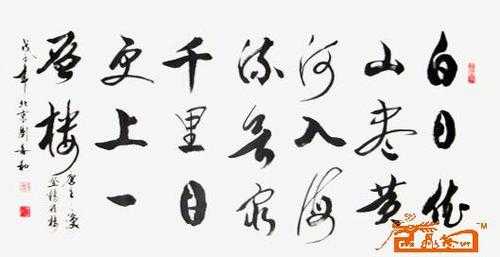 白日依
山尽黄
河入海
流欲穷
千里目
更上一
层楼
登鹳雀楼
戊子年北京